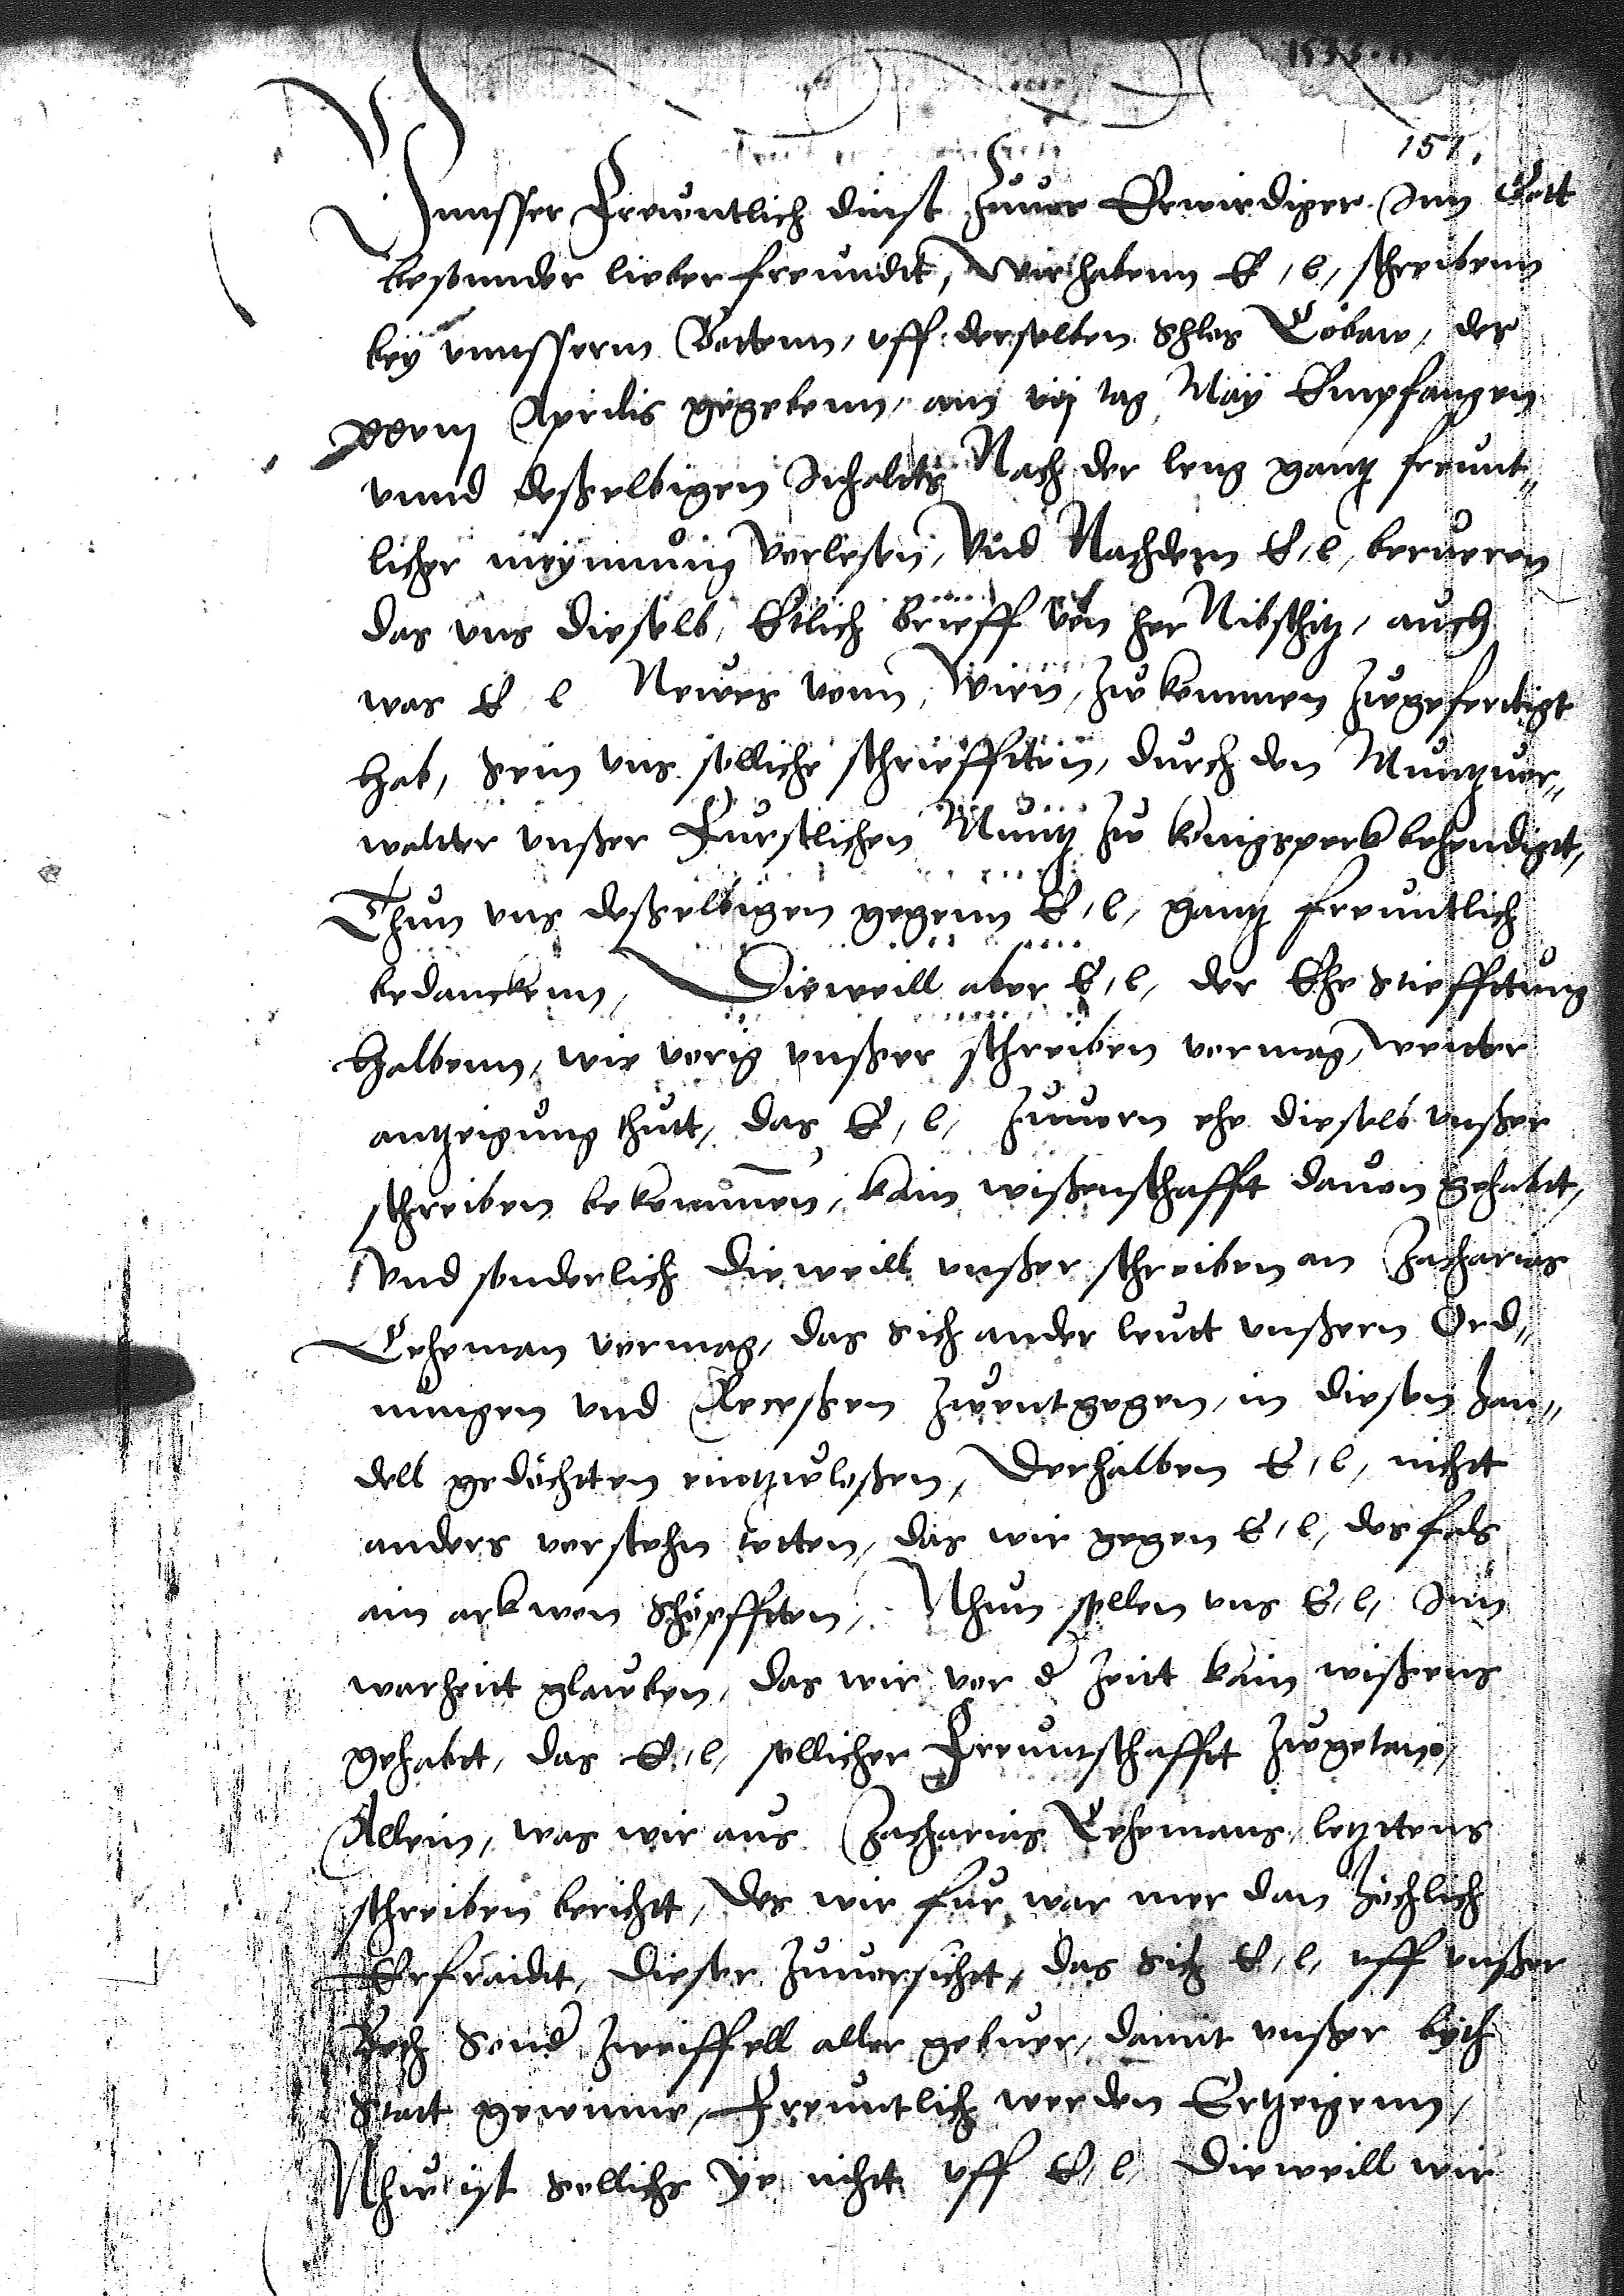 151.
Vnnsser Freuntlich dinst zuuor Erwirdiger Inn Gott
besonnder lieber freundt, Wir habenn E, l, schreibenn
bey vnnsserm Bottenn, vff derselben Schlos Löbaw, der
Aprilis gegebenn, am vij tag Maÿ Empfangen
vnnd desselbigen Inhaltts Nach der leng gantz freunt„
licher meynnung verlesen, Vnd Nachdem E, l, beruren
das vns dieselb, Etlich brieff von her Nibschitz, auch
was E, l Neues vonn, Wien, zw kommen zugefertigt
hab, Sein vns solliche schriefften, durch den Muntzuor„
walter vnßer Furstlichen Muntz zw konigsperk behendigt,
Thun vns deßelbigen gegenn E, l, gantz freuntlich
bedanckenn, Dieweill aber E, l, der Ehe Stiefftung
halbenn, wie vorig vnßer schreiben vermag, weitter
antzeigung thutt, das E, l, zuuorn ehe dieselb vnßer
schreiben bekommen, kain wißenschafft dauon gehabt,
Vnd sonderlich dieweill vnßer schreiben an Zacharias
Leheman vermag, das sich ander leutt vnßern Ord„
nungen vnd Receßen zwentgegen, in diesen han„
dell gedöchtten eintzwloßen, Derhalben E, l, nichtt
anders verstehn tetten, das wir gegen E, l, des fals
ain arkwon schöpfften, Nhun sollen vns E, l, Inn
warheitt glawben, das wir vor d zeitt kain wißens
gehabt, das E, l, sollicher Freuntschafft zwgetano,
Allein, was wir aus Zacharias Lehemans, letzttens
schreiben bericht, des wir fur war mer dan höchlich
Erfraidt, dieser zuuorsicht, das Sich E, l, vff vnßer
Sond zweiffell aller gebuer, damit vnßer byth
Statt gewinne, Freuntlich werden Ertzeigenn,
Nhu ist Sollichs ye nichtt vff E, l, dieweill wir